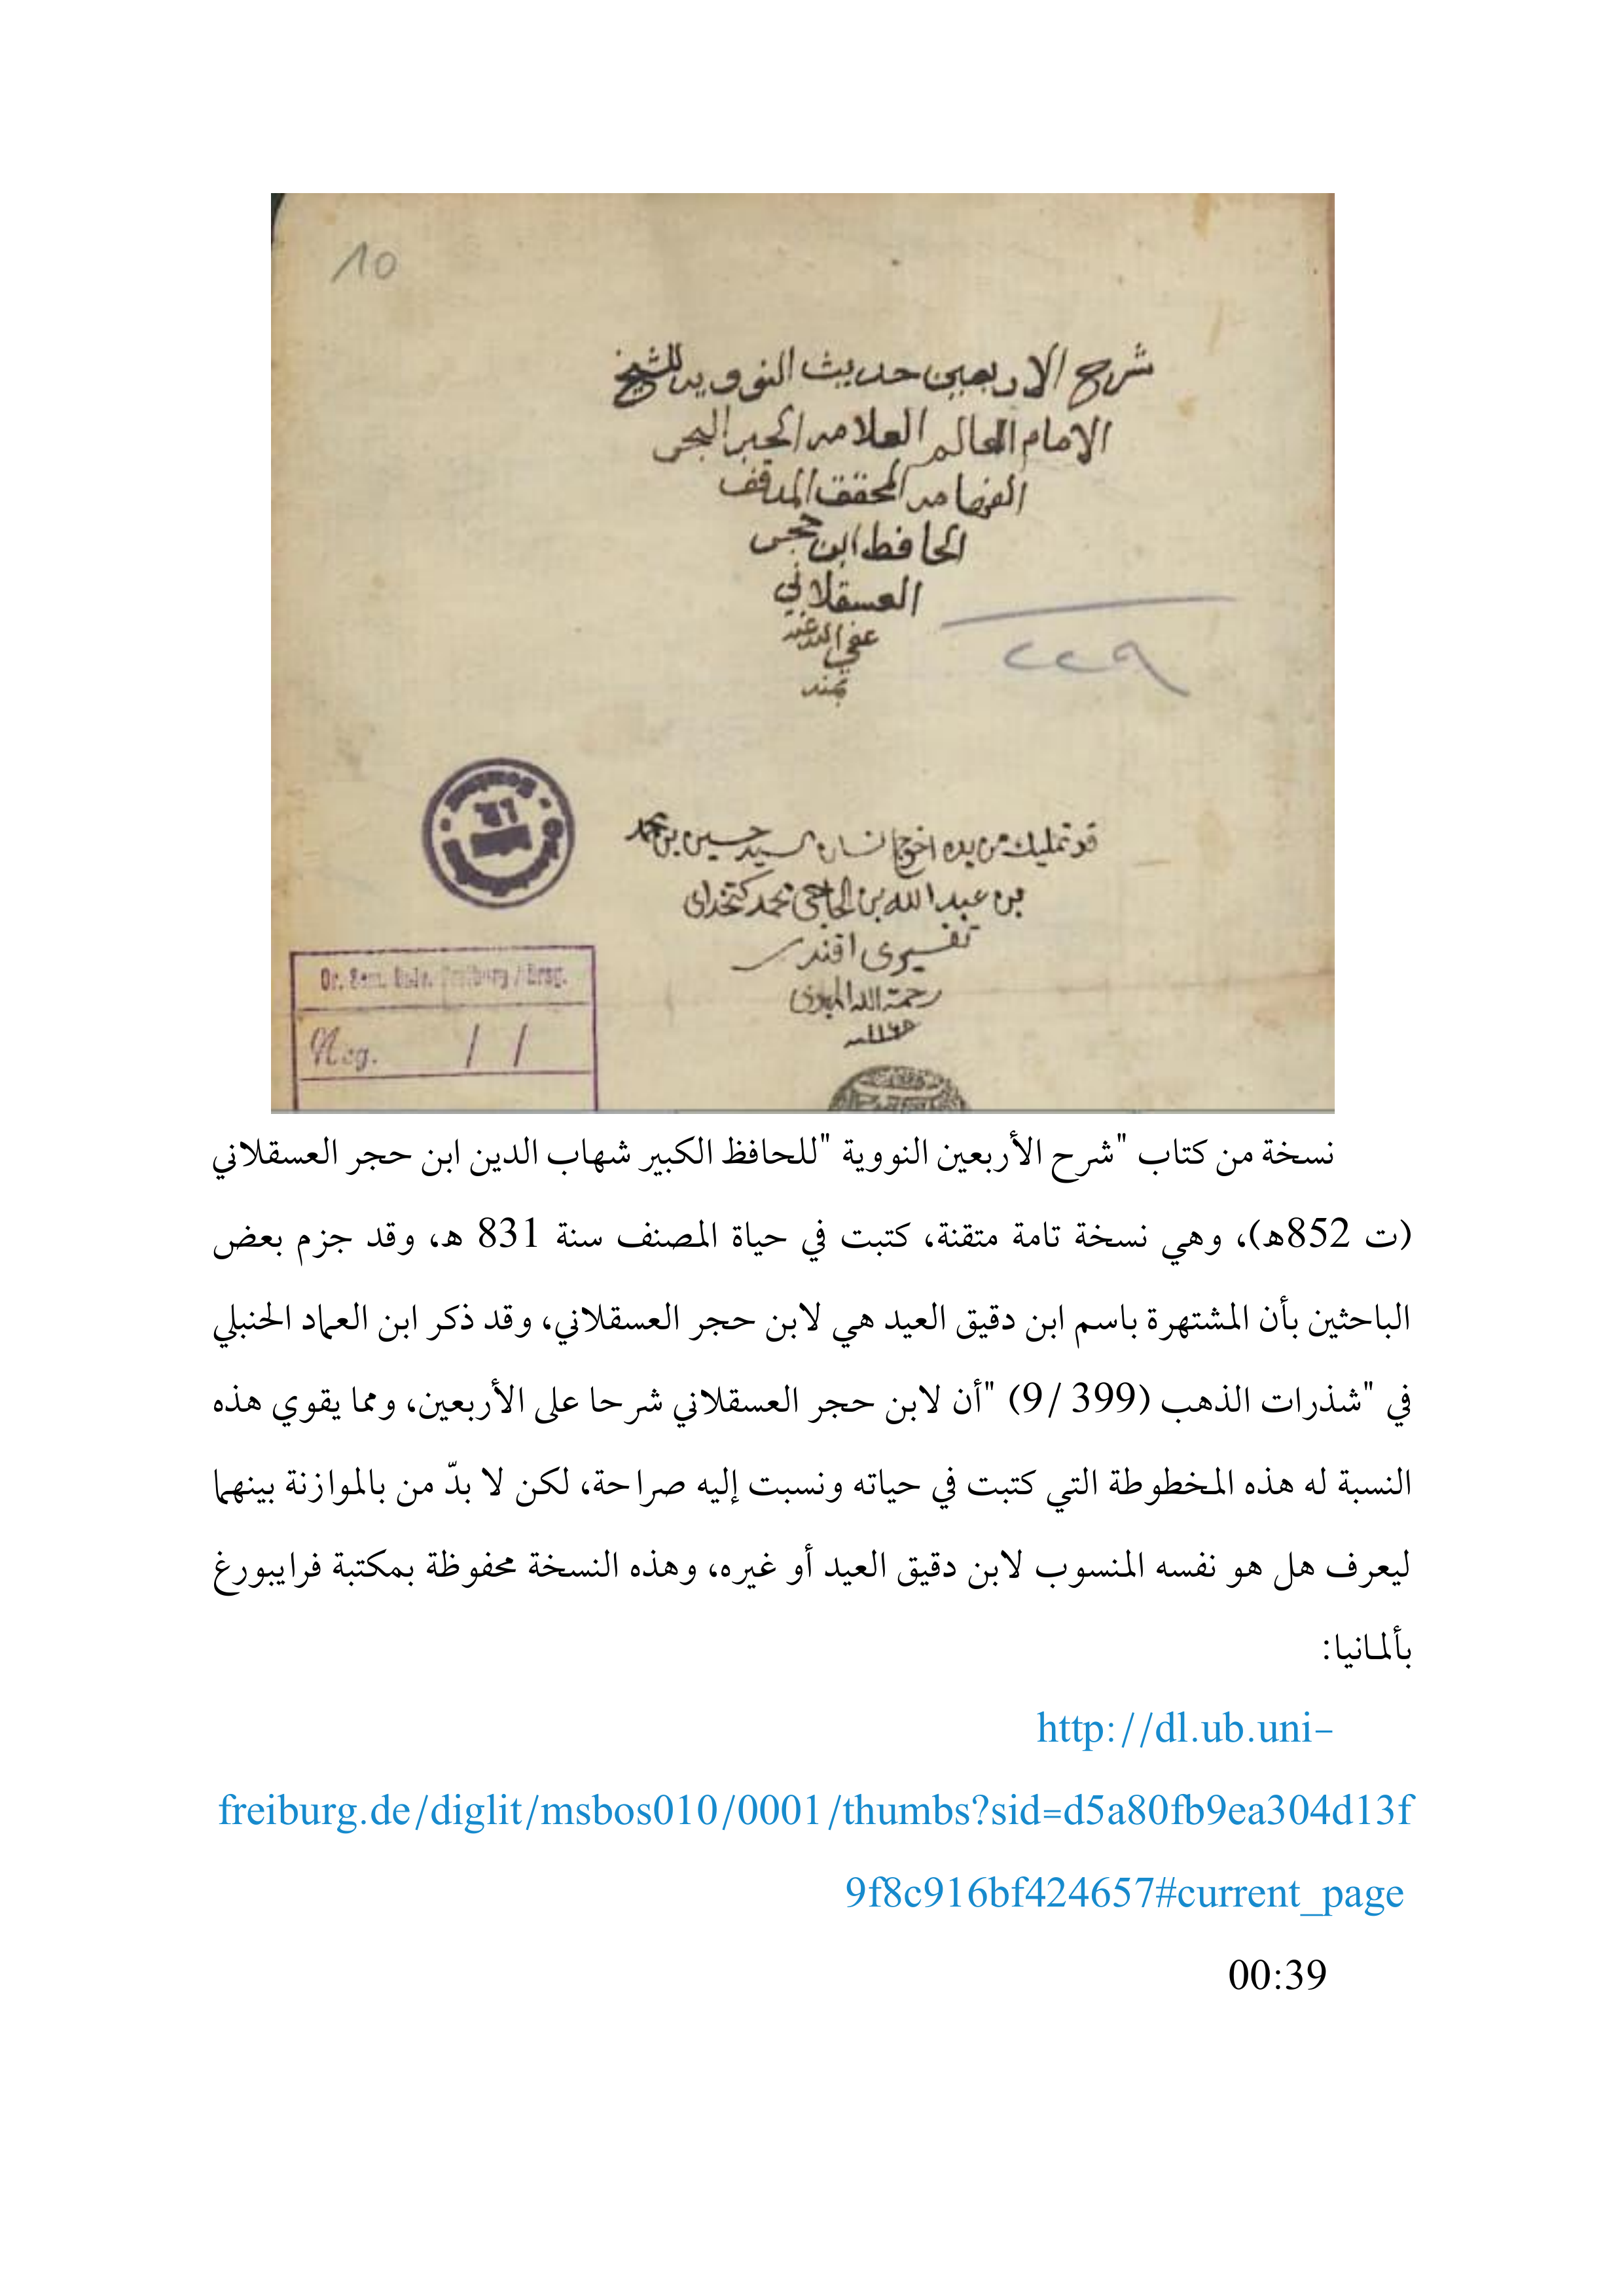 10
شرح الاربعين حديث النوويه للشيخ
الامام العالم العلامه الحبر البحر
الفهامه المحقق المدقق
الحافظ ابن حجر
العسقلاني
عفي الله عنه
بمنه
٢٢٩
قد تمليك من يده سيد حسين بن محمد
بن عبد الله بن الحاجي محمد كتخداي
تفسيري افندي
رحمة الله
Or. Sem. Univ. Freiburg / Brsg.
Neg. / /
نسخة من كتاب "شرح الأربعين النووية "للحافظ الكبير شهاب الدين ابن حجر العسقلاني
(ت 852ه)، وهي نسخة تامة متقنة، كتبت في حياة المصنف سنة 831 ه، وقد جزم بعض
الباحثين بأن المشتهرة باسم ابن دقيق العيد هي لابن حجر العسقلاني، وقد ذكر ابن العماد الحنبلي
في "شذرات الذهب (399 /9) "أن لابن حجر العسقلاني شرحا على الأربعين، ومما يقوي هذه
النسبة له هذه المخطوطة التي كتبت في حياته ونسبت إليه صراحة، لكن لا بدّ من بالموازنة بينهما
ليعرف هل هو نفسه المنسوب لابن دقيق العيد أو غيره، وهذه النسخة محفوظة بمكتبة فرايبورغ
بألمانيا:
http://dl.ub.uni-
freiburg.de/diglit/msbos010/0001/thumbs?sid=d5a80fb9ea304d13f
9f8c916bf424657#current_page
00:39